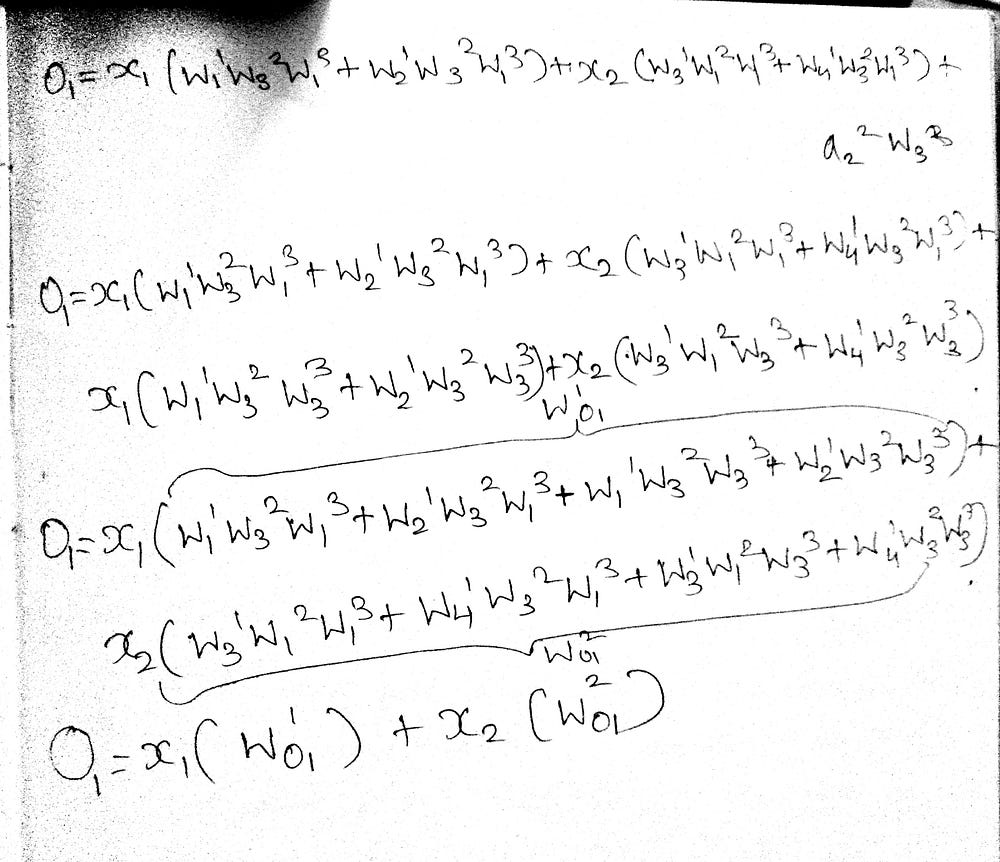 O₁=x₁(w₁¹w₃²w₁³+w₂¹w₃²w₁³)+x₂(w₃¹w₁²w₁³+w₄¹w₃²w₁³)+
a₂²w₃³
O₁=x₁(w₁¹w₃²w₁³+w₂¹w₃²w₁³)+x₂(w₃¹w₁²w₁³+w₄¹w₃²w₁³)+
x₁(w₁¹w₃²w₃³+w₂¹w₃²w₃³)+x₂(w₃¹w₁²w₃³+w₄¹w₃²w₃³)
w¹₀₁
O₁=x₁(w₁¹w₃²w₁³+w₂¹w₃²w₁³+w₁¹w₃²w₃³+w₂¹w₃²w₃³)+
x₂(w₃¹w₁²w₁³+w₄¹w₃²w₁³+w₃¹w₁²w₃³+w₄¹w₃²w₃³)
w²₀₁
O₁=x₁(w¹₀₁)+x₂(w²₀₁)